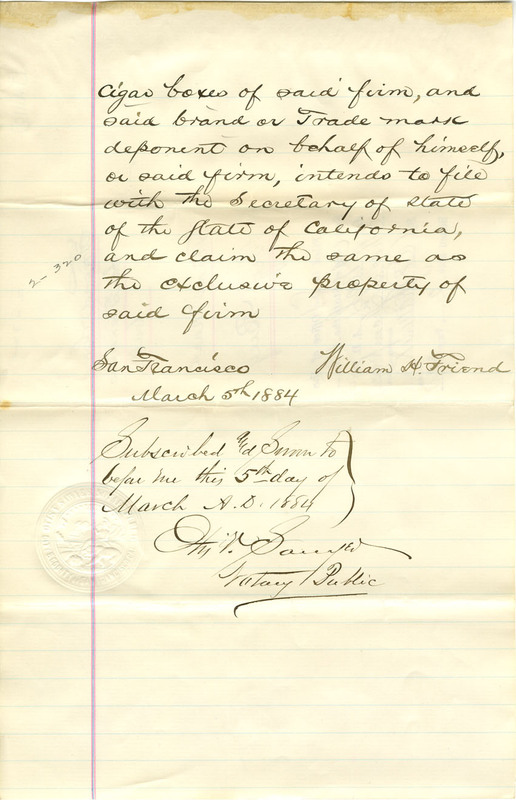 cigar boxes of said firm, and
said brand or Trade mark
deponent on behalf of himself,
or said firm, intends to file
with the Secretary of state
of the State of California,
and claim the same as
the exclusive property of
said firm
2-320
San Francisco William H. Friend
March 5th 1884
Subscribed &d Sworn to
before me this 5th day of
March A.D. 1884
Notary Public